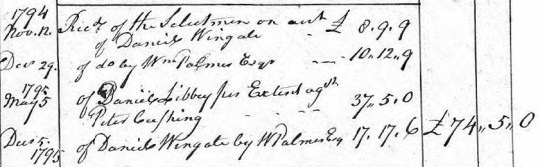 1794
Nov. 12. Rec.d of the Selectmen on acct £ 8.9.9
of Daniel Wingate
Dec 29. of do by Wm Palmer Esqr 10.12.9
1795
May 5 of Daniel Libbey per Extent agst
Peter Cushing 37.5.0
Dec 5. of Daniel Wingate by W Palmer Esq 17.17.6 £74.5.0
1795